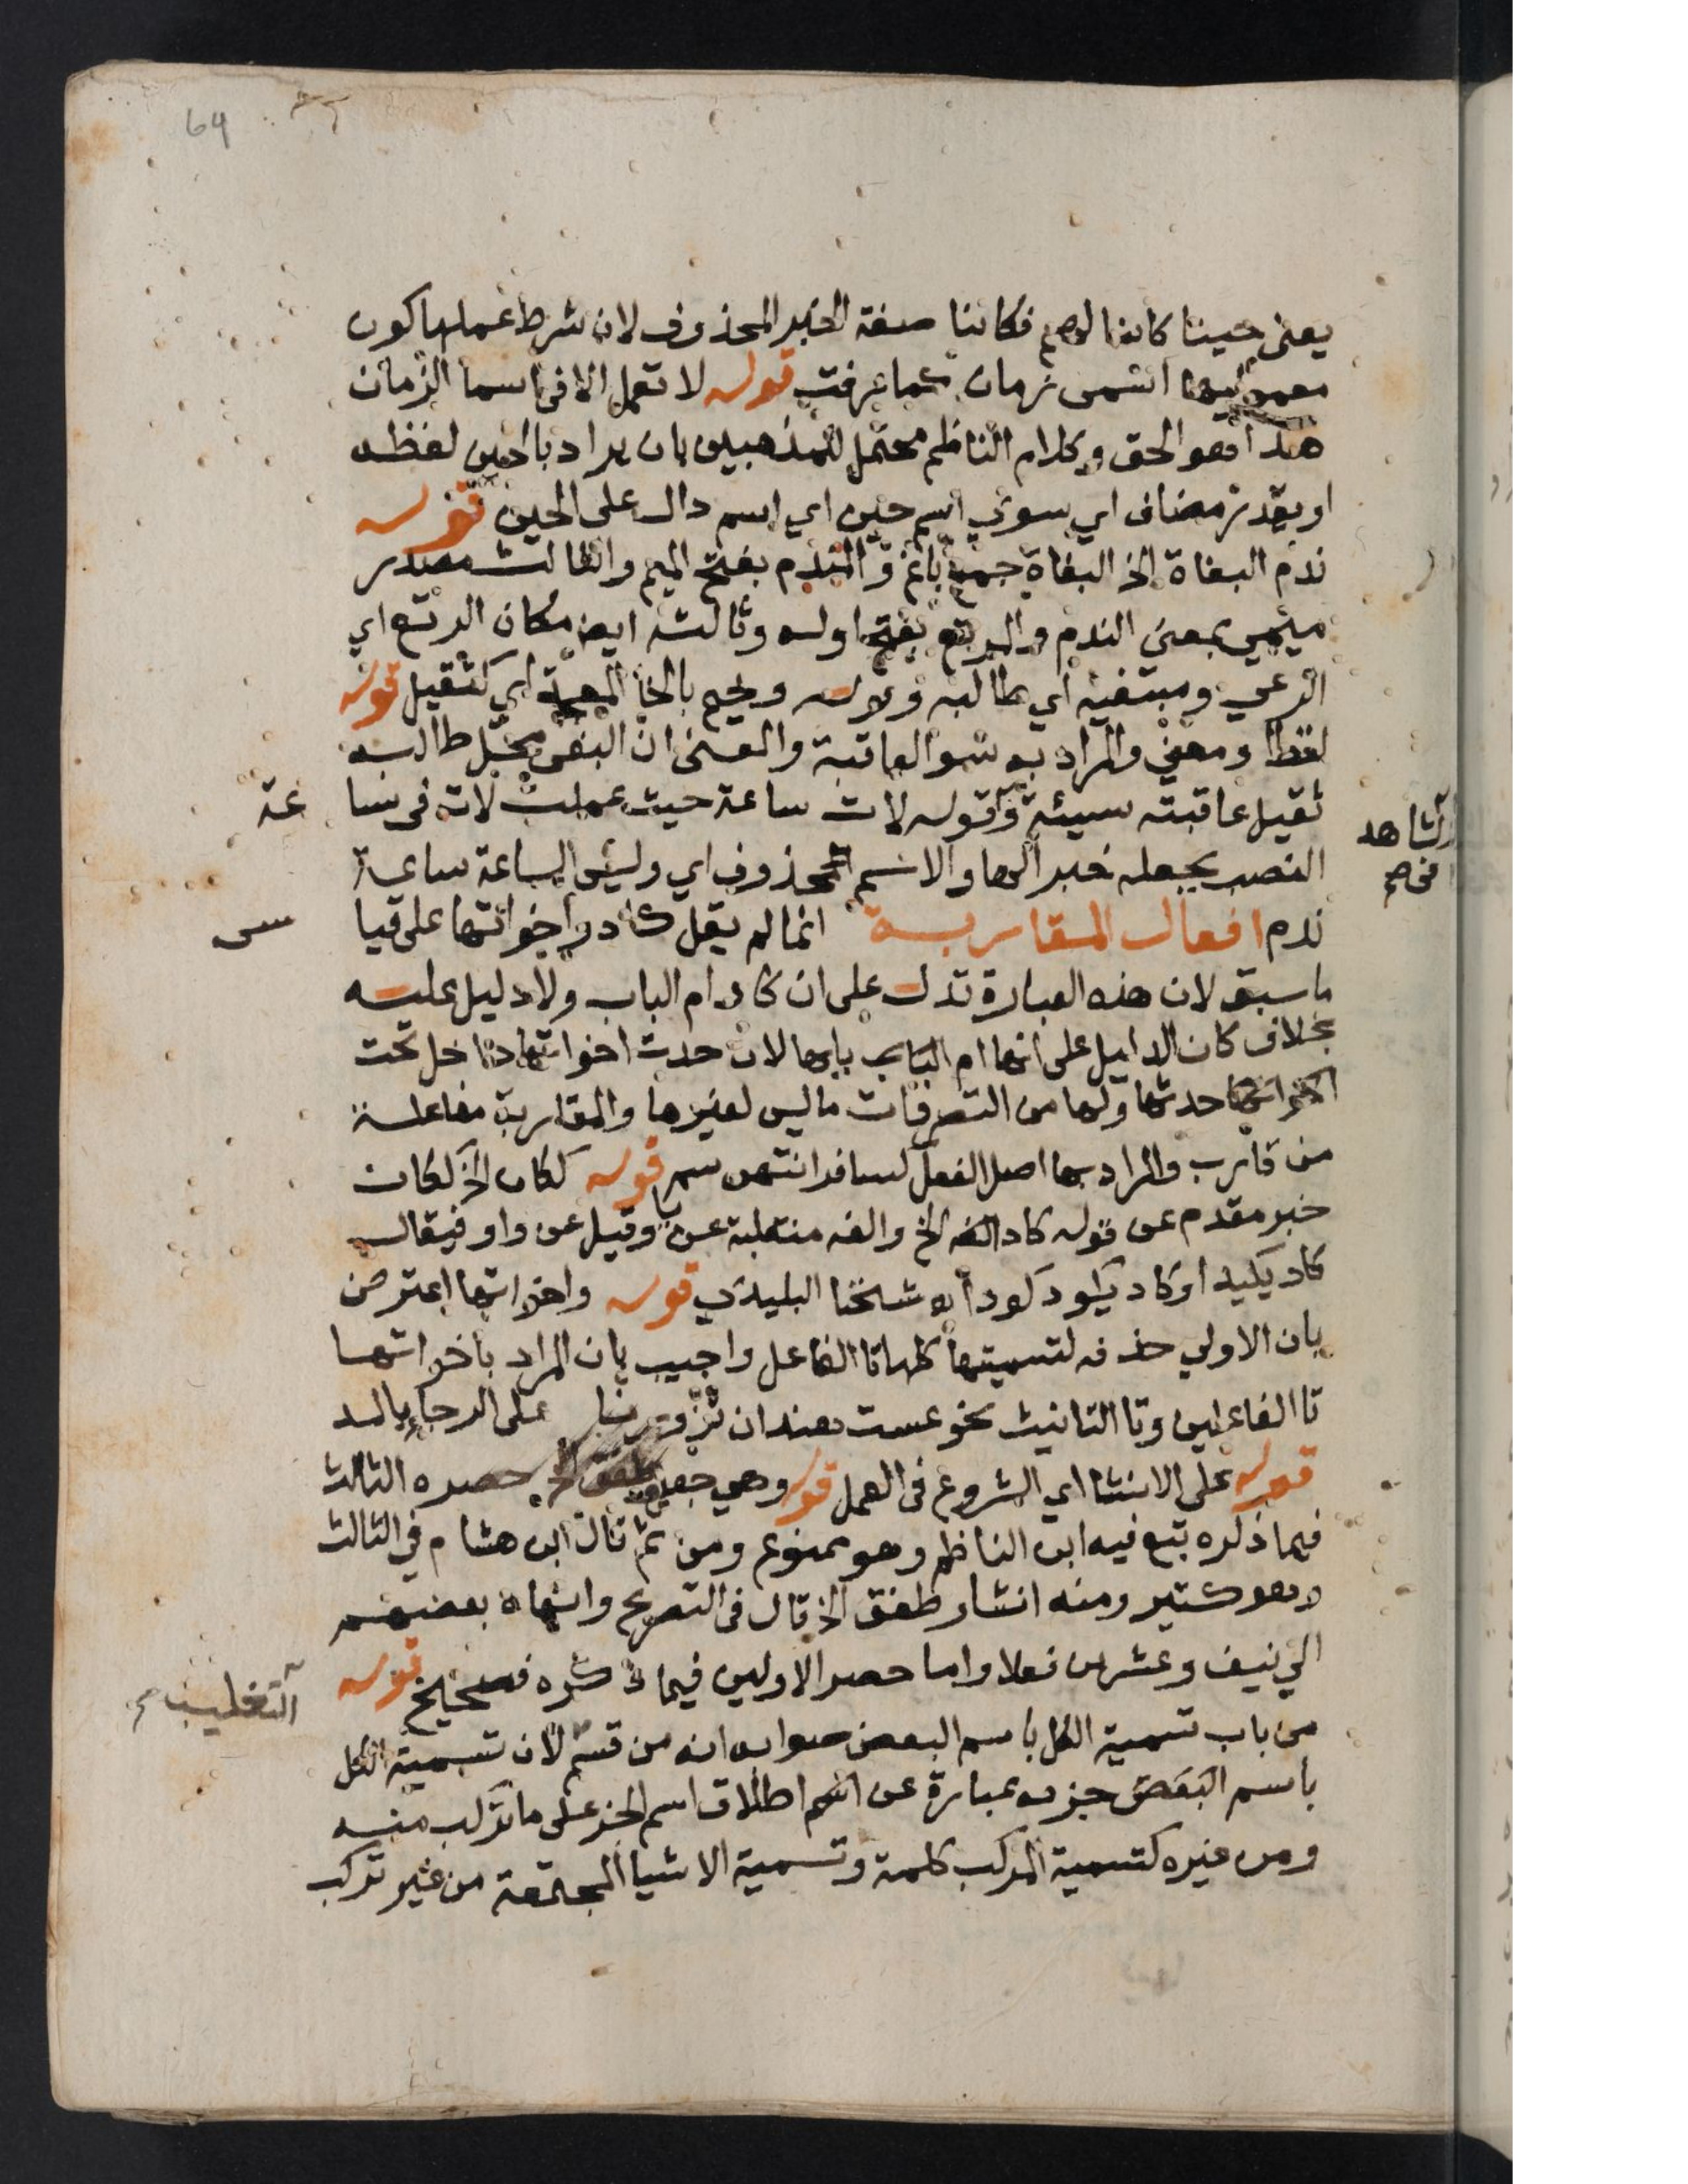 64
يعنى حينا كائنا لهم فكائنا صفة الخبر المحذوف لان شرط عملها كون
معموليها اسمى زمان كما عرفت قوله لا تعمل الا فى اسما الزمان
هذا هو الحق وكلام الناظم محتمل للمذهبين بان يراد بالحين لفظه
او يقدر مضاف اي سوي اسم حين اي اسم دال على الحين قوله
ندم البغاة الخ البغاة جمع باغ و المندم بفتح الميم والثالث مصدر
ميمي بمعني الندم والمرتع بفتح اوله وثالثه ايض مكان الرتع اي
الرعي ومبتغيه اي طالبه وقوله وخيم بالخا المعجمة اي كثقيل قوله
لفظا ومعني والمراد به سو العاقبة والمعنى ان البغى محل طالبه
ثقيل عاقبته سيئة وقوله لات ساعة حيث عملت لات فى سا عة
والشاهد
فى صح
النصب بجعله خبر الها والاسم المحذوف اي وليس الساعة ساعة
ندم افعال المقاربة انما لم يقل كاد واخواتها على قيا سى
ما سبق لان هذه العبارة تدل على ان كاد ام الباب ولا دليل عليه
بخلاف كان الدليل على انها ام الباب بابها لان حدث اخواتها داخل تحت
حدثها ولها من التصرفات ما ليس لغيرها والمقاربة مفاعلة
من قارب والمراد بها اصل الفعل كسافر انتهى سم قوله ككان الخ ككان
خبر مقدم عن قوله كاد الفه الخ والفه منقلبة عن يا وقيل عن واو فيقال
كاد يكيد او كاد يكود كودا اه شيخنا البليدي قوله واخواتها اعترض
بان الاولي حذفه لتسميتها كلها تا الفاعل واجيب بان المراد باخواتها
تا الفاعلين وتا التانيث نحو عست هند ان تزورنا على الرجا بالمد
قوله على الانشا اي الشروع فى العمل قوله وهي جعل وطفق الخ حصره الثالث
فيما ذكره تبع فيه ابن الناظم وهو ممنوع ومن ثم قال ابن هشام في الثالث
وهو كثير ومنه انشا وطفق الخ قال فى التصريح وانهاه بعضهم
الي نيف وعشرين فعلا واما حصر الاولين فيما ذكره فصحيح قوله
التغليب صح
من باب تسمية الكل باسم البعض صوابه انه من قسم لان تسمية الكل
باسم البعض جزء عبارة عن اطلاق اسم الجزء على ما تركب منه
ومن غيره كتسمية المركب كلمة وتسمية الاشيا المجتمعة من غير تركب